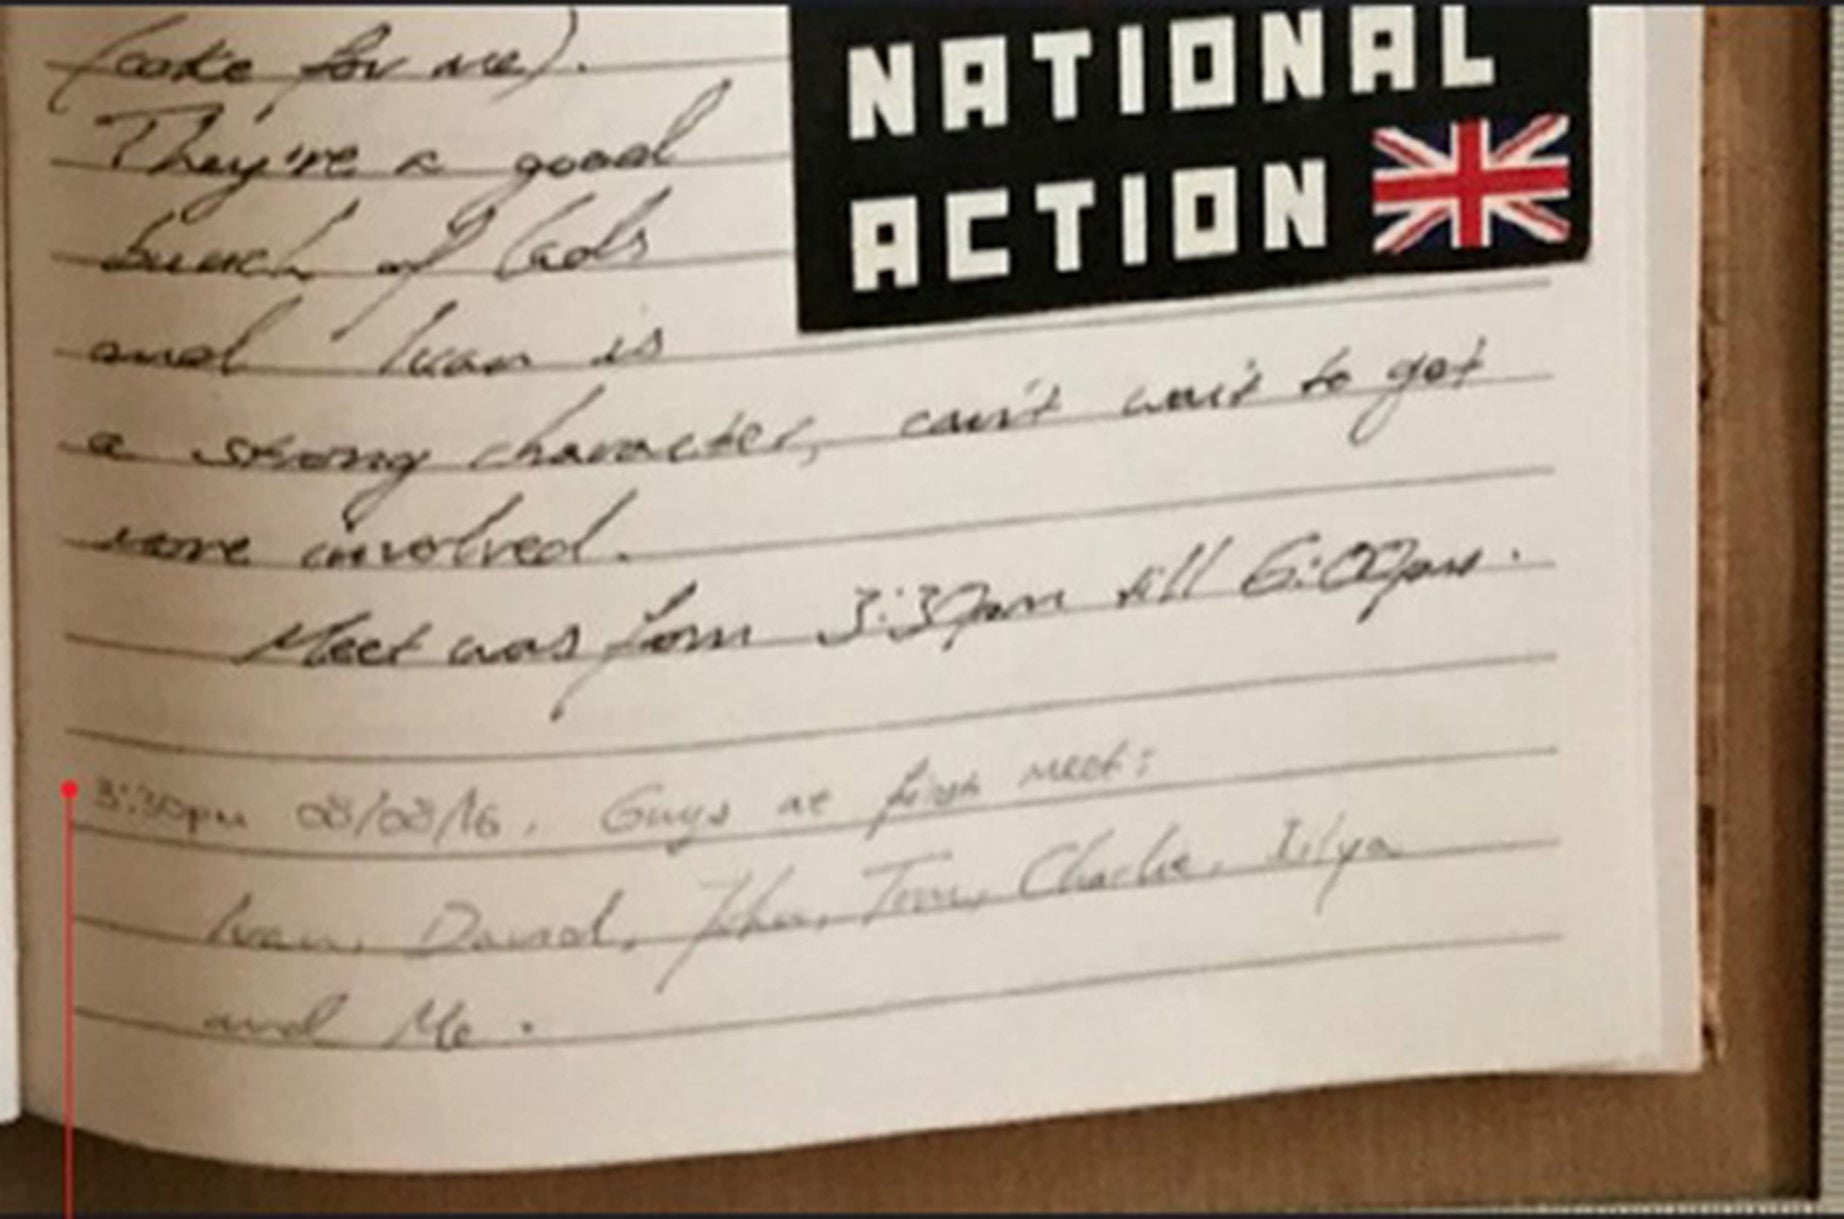 (coke for me).
They're a good
bunch of lads
and Ivan is
a strong character, can't wait to get
more involved.
Meet was form 3:30pm till 6:00pm.
3:30pm 08/08/16. Guys at first meet:
Ivan, David, John, Tom, Charlie, Ilya
and Me.
NATIONAL
ACTION